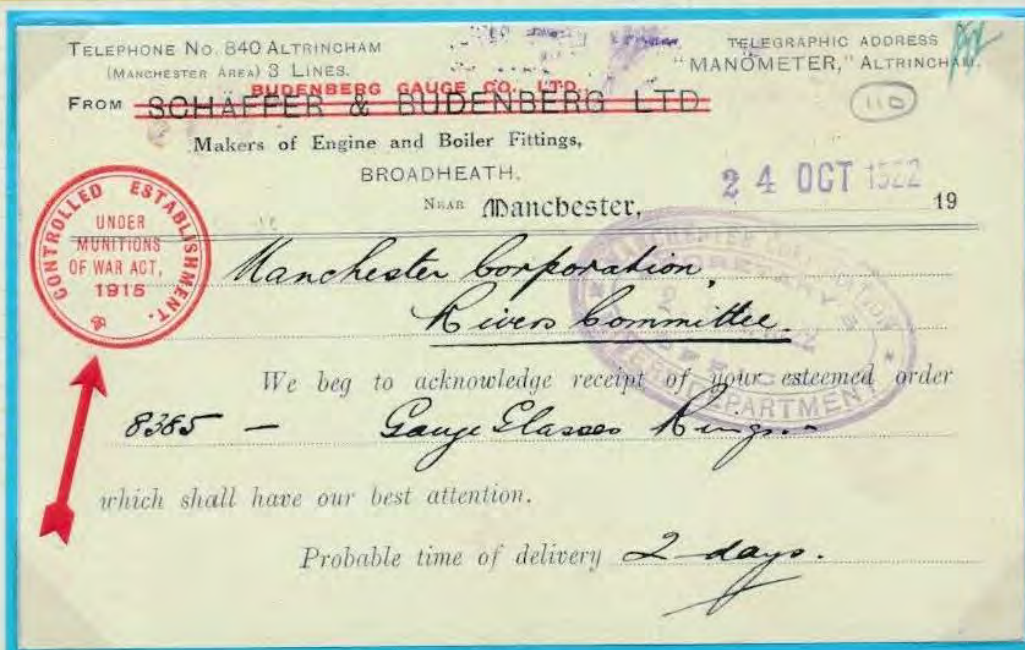 TELEPHONE No. 840 ALTRINCHAM
(MANCHESTER AREA) 3 LINES.
TELEGRAPHIC ADDRESS
"MANOMETER," ALTRINCHAM.
110
BUDENBERG GAUGE CO. LTD.
FROM SCHÄFFER & BUDENBERG LTD
Makers of Engine and Boiler Fittings,
BROADHEATH.
NEAR Manchester, 19
24 OCT 1922
CONTROLLED ESTABLISHMENT.
UNDER
MUNITIONS
OF WAR ACT,
1915
Manchester Corporation,
Rivers Committee.
MANCHESTER CORPORATION
DEPARTMENT
We beg to acknowledge receipt of your esteemed order
8385 – Gauge Glasses Rings
which shall have our best attention.
Probable time of delivery 2 days.